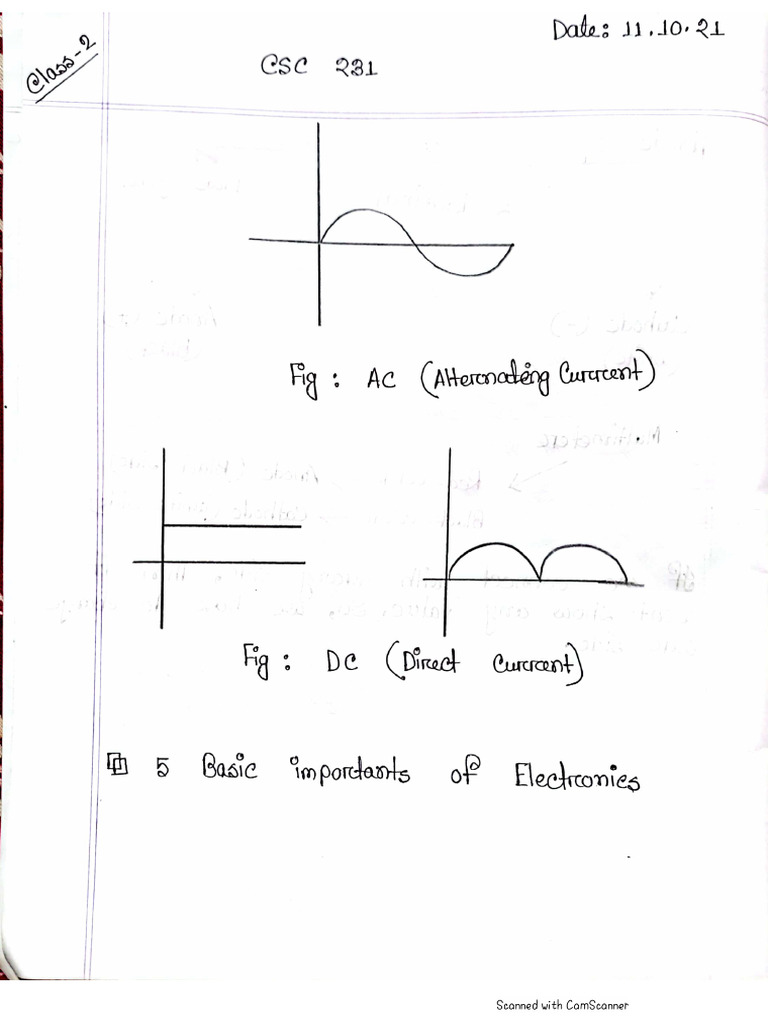 Class-2
Date: 11.10.21
CSC 231
Fig : AC (Alternating Current)
Fig : DC (Direct Current)
5 Basic importants of Electronics
Scanned with CamScanner